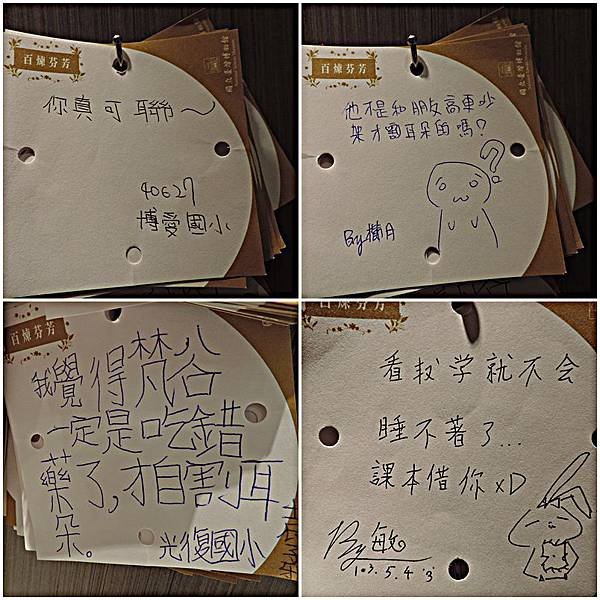 百煉芬芳
國立臺灣博物館
你真可聯～
40627
博愛國小
百煉芬芳
國立臺灣博物館
他不是和朋友高更吵
架才割耳朵的嗎?
?
By
百煉芬芳
我覺得梵谷
一定是吃錯
藥了,才自割耳
朵。
光復國小
百煉芬芳
看数学就不会
睡不著了...
課本借你 xD
By 敏
103.5.4